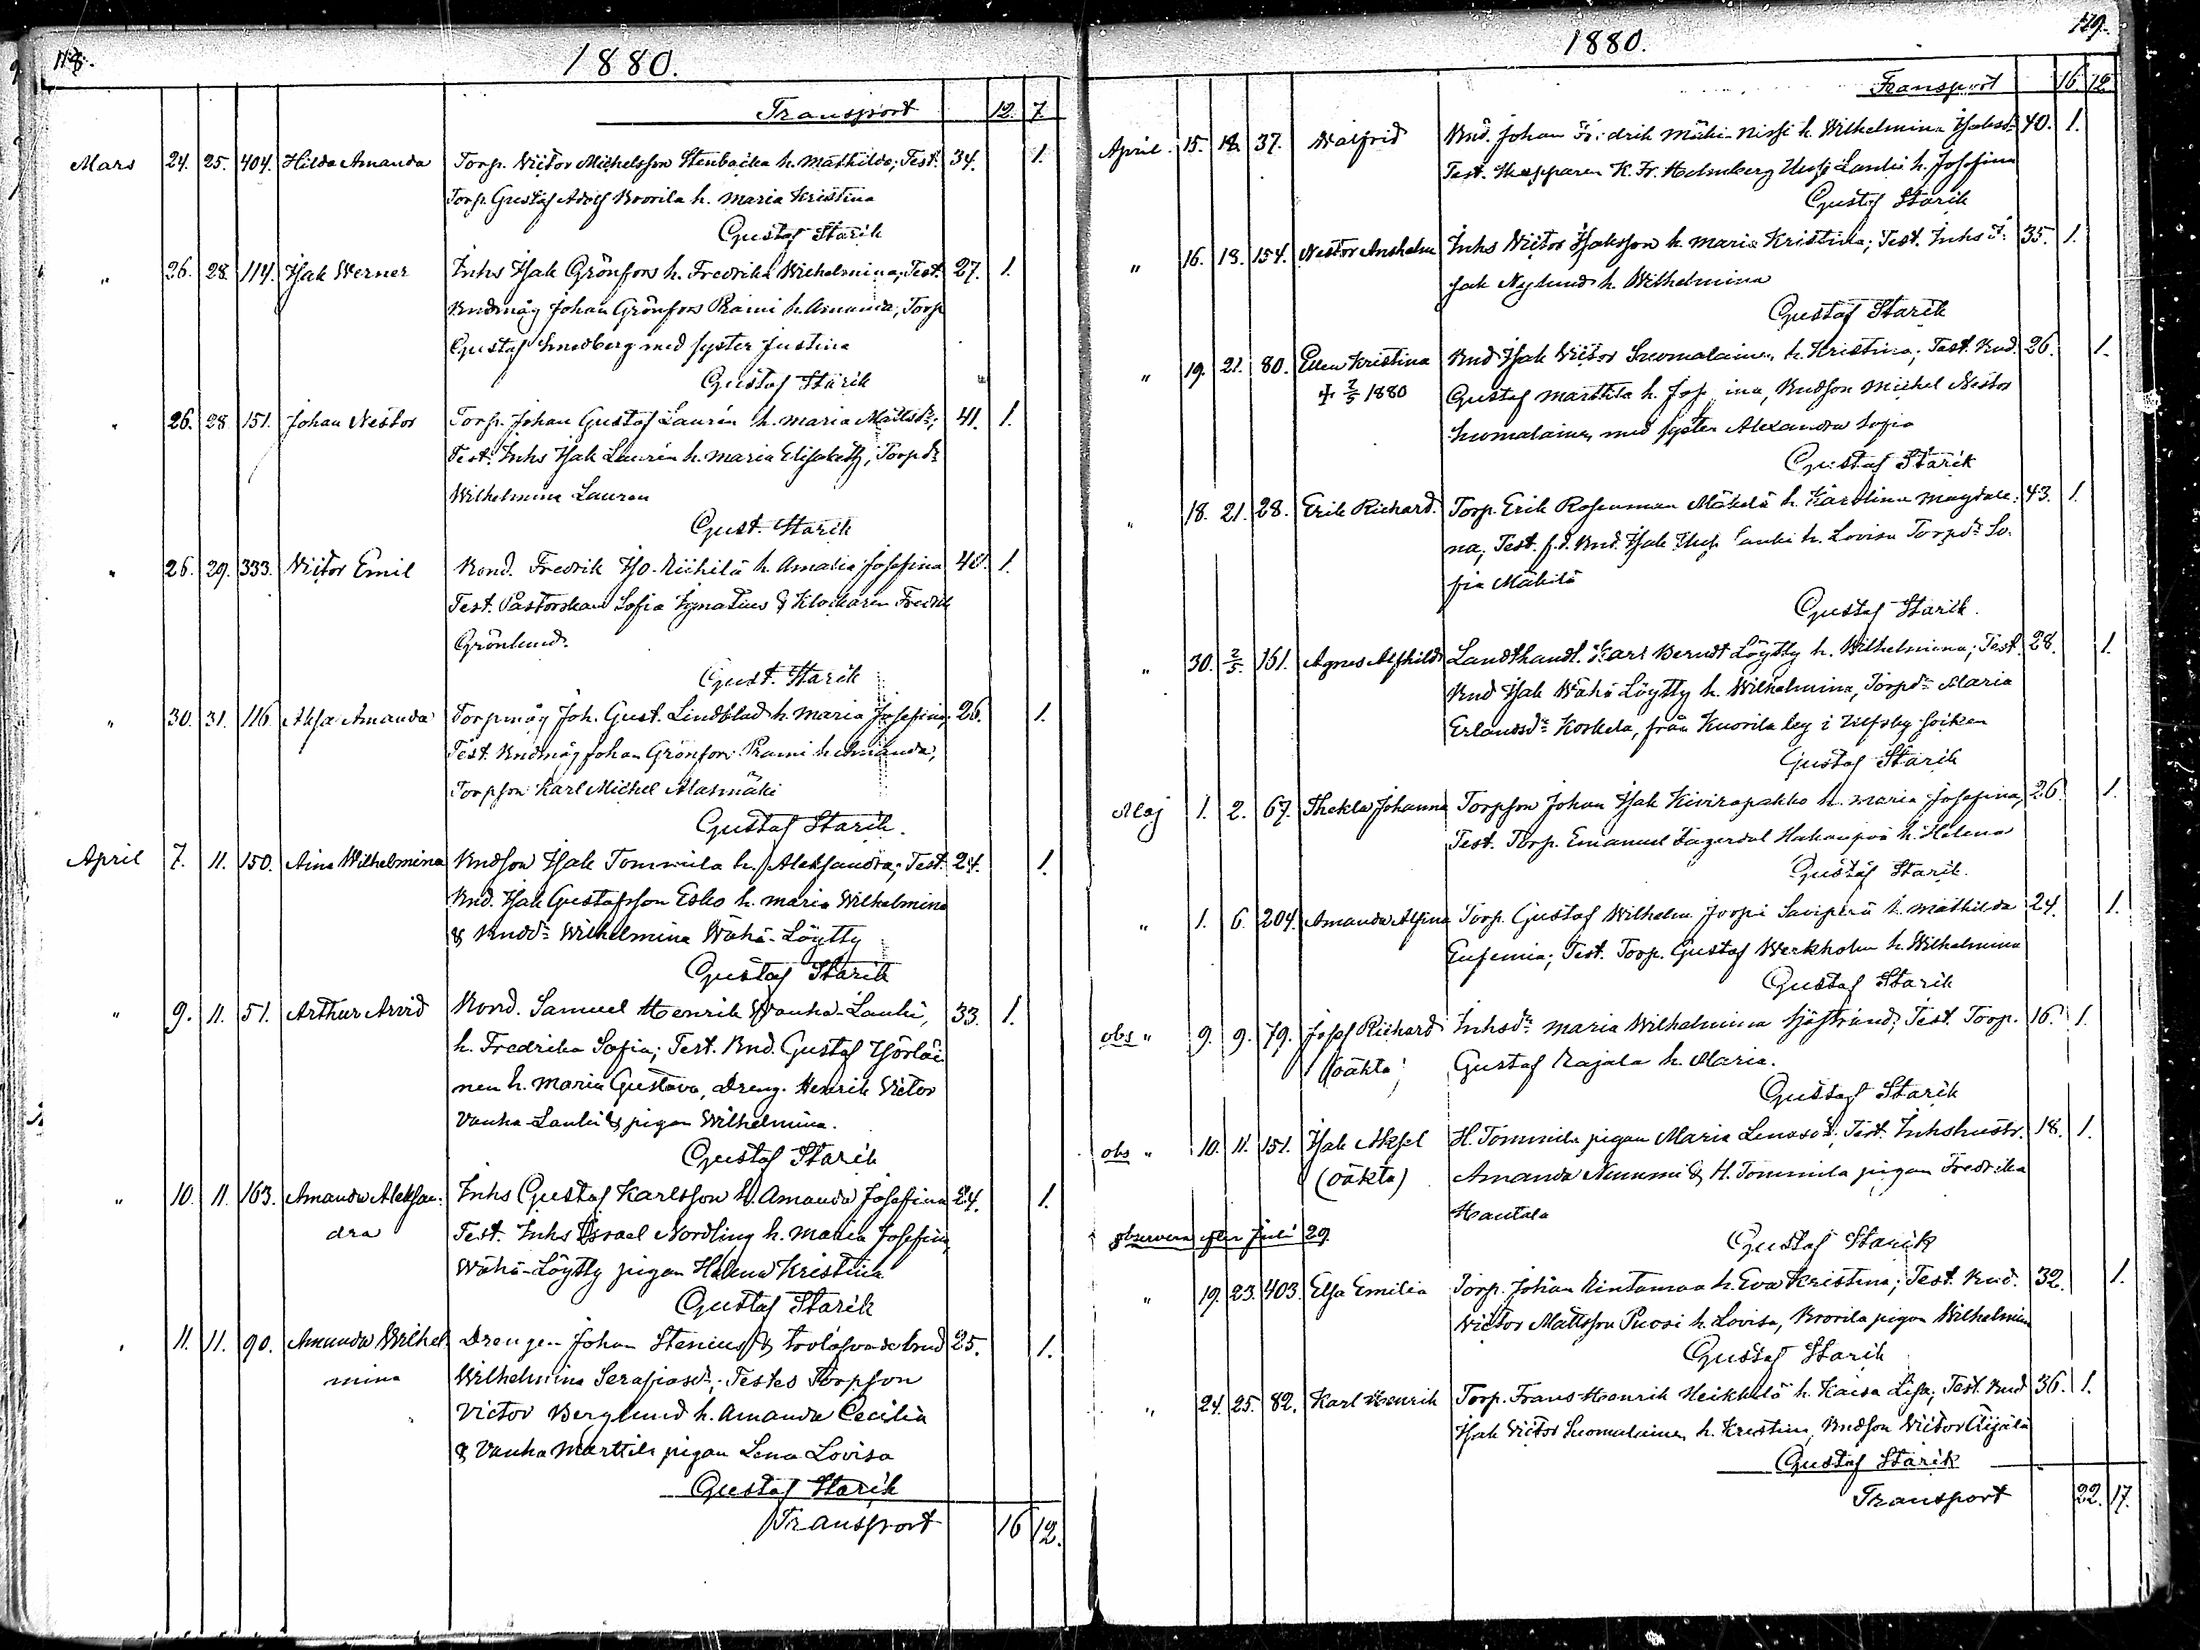 118.
1880.
Transport 12. 7.
Mars 24. 25. 404. Hilda Amanda Torp. Victor Michelsson Stenbacka h. Mathilda; Test. 34. 1.
Torp. Gustaf Adolf Knorila h. Maria Kristina
Gustaf Starik
" 26. 28. 114. Isak Werner Inhs Isak Grönfors h. Fredrika Wilhelmina; Test. 27. 1.
Bndmåg Johan Grönfors Prami h. Amanda, Torp
Gustaf Smedberg med syster Justina
Gustaf Starik
" 26. 28 151. Johan Nestor Torp. Johan Gustaf Laurén h. Maria Mattsdr; 41. 1.
Test. Inhs Isak Laurén h. Maria Elisabeth, Torpdr
Wilhelmina Lauren
Gust. Starik
" 26. 29. 333. Victor Emil Bond. Fredrik Iso-Riihilä h. Amalia Josefina 40. 1.
Test. Pastorskan Sofia Ignatius & Klockaren Fredrik
Grönlund.
Gust. Starik
" 30. 31. 116 Aksa Amanda Torpmåg Joh. Gust. Lindblad h. Maria Josefina; 26. 1.
Test. Bndmåg Johan Grönfors Prami h. Amanda,
Torpson Karl Michel Alasmäki
Gustaf Starik.
April 7. 11. 150. Aina Wilhelmina Bndson Isak Tommila h. Aleksandra; Test. 24. 1.
Bnd. Isak Gustafsson Esko h. Maria Wilhelmina
& Bnddr Wilhelmina Wähä-Löytty
Gustaf Starik
" 9. 11. 51. Arthur Arvid Bond. Samuel Henrik Wanha-Lauki, 33. 1.
h. Fredrika Sofia; Test. Bnd. Gustaf Yörläi
nen h. Maria Gustava, Dreng. Henrik Victor
Vanha-Lauki & pigan Wilhelmina.
Gustaf Starik
" 10. 11. 163. Amanda Aleksan- Inhs Gustaf Karlsson h. Amanda Josefina 24. 1.
dra Test. Inhs Israel Nordling h. Maria Josefina,
Wähä-Löytty pigan Helena Kristina
Gustaf Starik
" 11. 11. 90. Amanda Wilhel Drengen Johan Stenius & trolofvade brud 25. 1.
mina Wilhelmina Serafiasdr; Testes Torpson
Victor Berglund h. Amanda Cecilia
& Vanha Marttila pigan Lena Lovisa
Gustaf Starik
Transport 16 12.
119.
1880.
Transport 16 12
April 15. 18. 37. Walfrid Bnd. Johan Fredrik Mäki-Nissi h. Wilhelmina Isaksdr 40. 1.
Test. Skepparen K. Fr. Holmberg Uusi Lauki h. Josefina
Gustaf Starik
" 16. 18. 154. Nestor Anshelm Inhs Victor Isaksson h. Maria Kristina; Test. Inhs I- 35. 1.
sak Nylund h. Wilhelmina
Gustaf Starik
" 19. 21. 80. Ellen Kristina Bnd Isak Victor Suomalainen h. Kristina; Test. Bnd. 26. 1.
+ 2/5 1880 Gustaf Marttila h. Josefina, Bndson Michel Nestor
Suomalainen med syster Alexandra Sofia
Gustaf Starik
" 18. 21. 28. Erik Richard. Torp. Erik Rosenman Mäkelä h. Karolina Magdale- 43. 1.
na; Test. f.d. Bnd. Isak Uusi Lauki h. Lovisa Torpdr So-
fia Mäkilä
Gustaf Starik.
" 30. 2/5. 151. Agnes Alfhild Landthandl. Karl Berndt Löytty h. Wilhelmina; Test. 28. 1.
Bnd Isak Wähä Löytty h. Wilhelmina, Torpdr Maria
Erlandsdr Korkela, från Kuorila by i Ulfsby socken
Gustaf Starik
Maj 1. 2. 67. Thekla Johanna Torpson Johan Isak Kivirapakko h. Maria Josefina, 26. 1.
Test. Torp. Emanuel Fagerdal Hakanpää h. Helena
Gustaf Starik.
" 1. 6. 204. Amanda Alfina Torp. Gustaf Wilhelm Joopi Saviperä h. Mathilda 24. 1.
Eufemia; Test. Torp. Gustaf Werkholm h. Wilhelmina
Gustaf Starik
obs " 9. 9. 79. Josef Richard Inhsdr Maria Wilhelmina Sjöstrand; Test. Torp. 16. 1.
(oäkta) Gustaf Rajala h. Maria.
Gustaf Starik
obs " 10. 11. 151. Isak Aksel H. Tommila pigan Maria Lenasdr. Test. Inhshustr. 18. 1.
(oäkta) Amanda Nummi & H. Tommila pigan Fredrika
Hautala
observera efter Juli 29
Gustaf Starik
" 19. 23. 403. Elsa Emilia Torp. Johan Rintamaa h. Eva Kristina; Test. Bnd. 32. 1.
Victor Mattsson Puosi h. Lovisa, Knorila pigan Wilhelmina
Gustaf Starik
" 24. 25. 82. Karl Henrik Torp. Frans Henrik Heikkilä h. Kaisa Lisa; Test. Bnd 36. 1.
Isak Victor Suomalainen h. Kristina, Bndson Victor Äijälä
Gustaf Starik
Transport 22. 17.